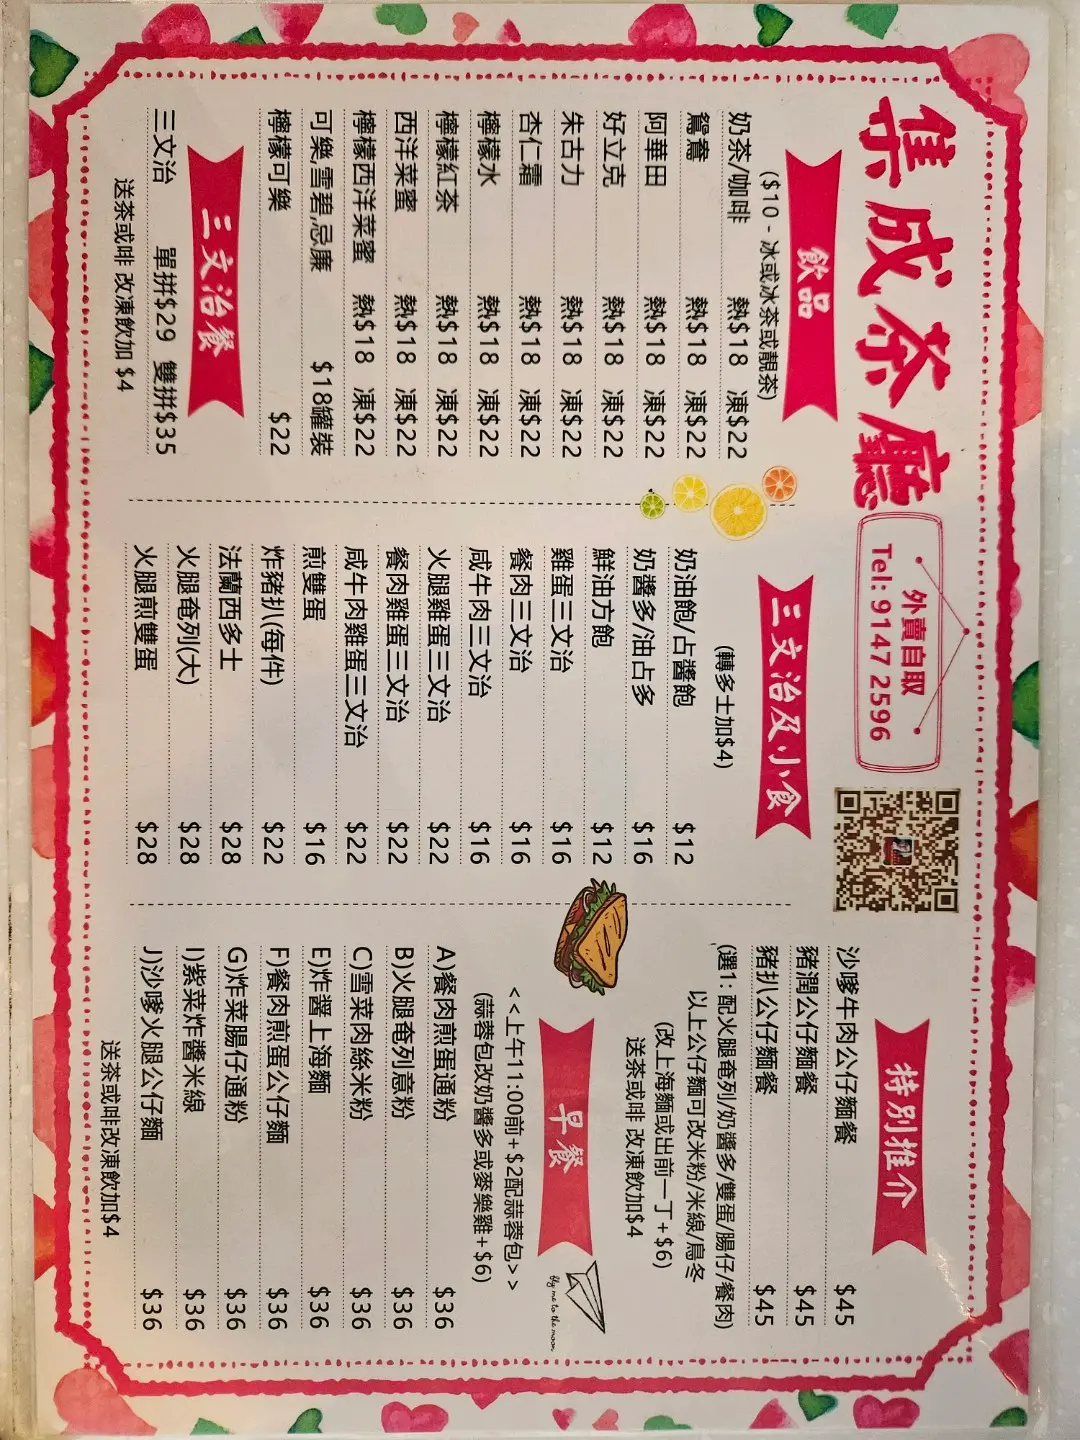 集成茶廳
外賣自取
Tel: 9147 2596
飲品
($10 - 冰或冰茶或靚茶)
奶茶/咖啡 熱$18 凍$22
鴛鴦 熱$18 凍$22
阿華田 熱$18 凍$22
好立克 熱$18 凍$22
朱古力 熱$18 凍$22
杏仁霜 熱$18 凍$22
檸檬水 熱$18 凍$22
檸檬紅茶 熱$18 凍$22
西洋菜蜜 熱$18 凍$22
檸檬西洋菜蜜 熱$18 凍$22
可樂,雪碧,忌廉 $18罐裝
檸檬可樂 $22
三文治餐
三文治 單拼$29 雙拼$35
送茶或啡 改凍飲加 $4
三文治及小食
(轉多士加$4)
奶油飽/占醬飽 $12
奶醬多/油占多 $16
鮮油方飽 $12
雞蛋三文治 $16
餐肉三文治 $16
咸牛肉三文治 $16
火腿雞蛋三文治 $22
餐肉雞蛋三文治 $22
咸牛肉雞蛋三文治 $22
煎雙蛋 $16
炸豬扒(每件) $22
法蘭西多士 $28
火腿奄列(大) $28
火腿煎雙蛋 $28
特別推介
沙嗲牛肉公仔麵餐 $45
豬潤公仔麵餐 $45
豬扒公仔麵餐 $45
(選1: 配火腿奄列/奶醬多/雙蛋/腸仔/餐肉)
以上公仔麵可改米粉/米線/烏冬
(改上海麵或出前一丁+$6)
送茶或啡 改凍飲加$4
早餐
<<上午11:00前+$2配蒜蓉包>>
(蒜蓉包改奶醬多或麥樂雞+$6)
A)餐肉煎蛋通粉 $36
B)火腿奄列意粉 $36
C)雪菜肉絲米粉 $36
E)炸醬上海麵 $36
F)餐肉煎蛋公仔麵 $36
G)炸菜腸仔通粉 $36
I)紫菜炸醬米線 $36
J)沙嗲火腿公仔麵 $36
送茶或啡改凍飲加$4
fly me to the moon